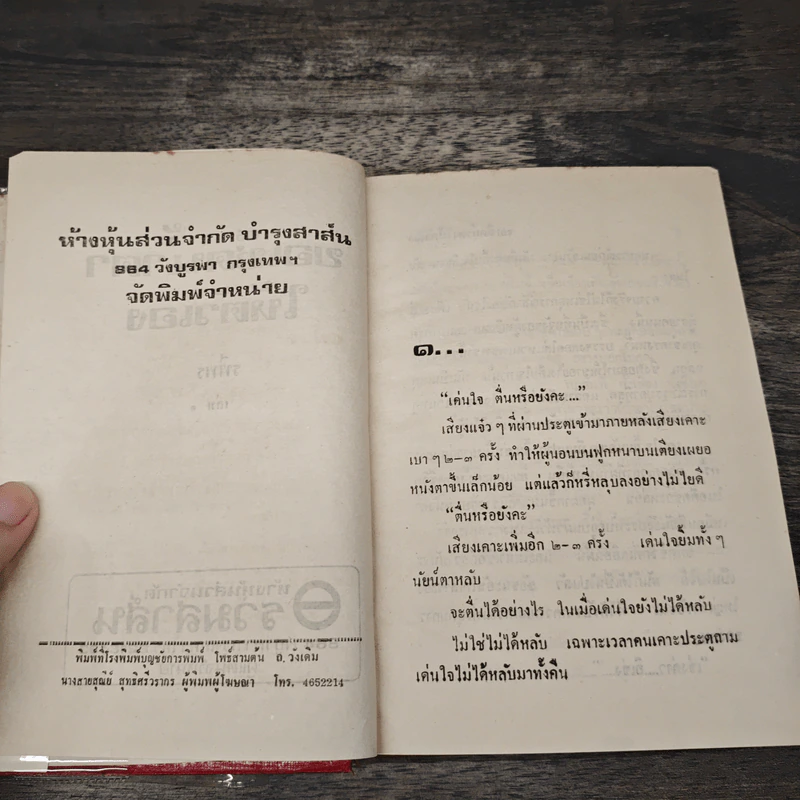 ห้างหุ้นส่วนจำกัด บำรุงสาส์น
864 วังบูรพา กรุงเทพฯ
จัดพิมพ์จำหน่าย
พิมพ์ที่โรงพิมพ์บุญชัยการพิมพ์ โพธิ์สามต้น ถ. วงเดิม
นางสายสุณีย์ สุทธิศรีวรากร ผู้พิมพ์ผู้โฆษณา โทร. 4652214
๑...
“เด่นใจ ตื่นหรือยังคะ...”
เสียงแจ๋ว ๆ ที่ผ่านประตูเข้ามาภายหลังเสียงเคาะ
เบา ๆ ๒–๓ ครั้ง ทำให้ผู้นอนบนฟูกหนาบนเตียงเผยอ
หนังตาขึ้นเล็กน้อย แต่แล้วก็หรี่หลุบลงอย่างไม่ไยดี
“ตื่นหรือยังคะ”
เสียงเคาะเพิ่มอีก ๒–๓ ครั้ง เด่นใจยิ้มทั้ง ๆ
นัยน์ตาหลับ
จะตื่นได้อย่างไร ในเมื่อเด่นใจยังไม่ได้หลับ
ไม่ใช่ไม่ได้หลับ เฉพาะเวลาคนเคาะประตูถาม
เด่นใจไม่ได้หลับมาทั้งคืน